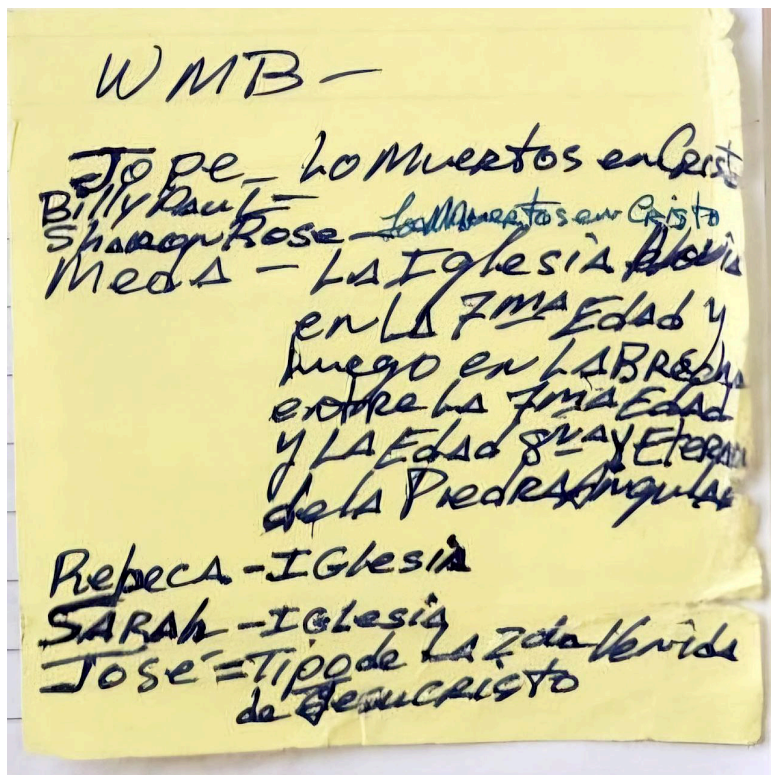 WMB -
Jope - Lo Muertos en Crist
Billy Paul -
Sharon Rose - Los Muertos en Cristo
Meda - LA Iglesia Novia
en LA 7MA Edad y
luego en LA Brecha
entre LA 7MA Edad
y LA Edad 8VA y Eterna
de la Piedra Angular
Rebeca - IGlesia
SARAh - IGLesia
José = Tipo de LA 2da Venida
de Jesucristo